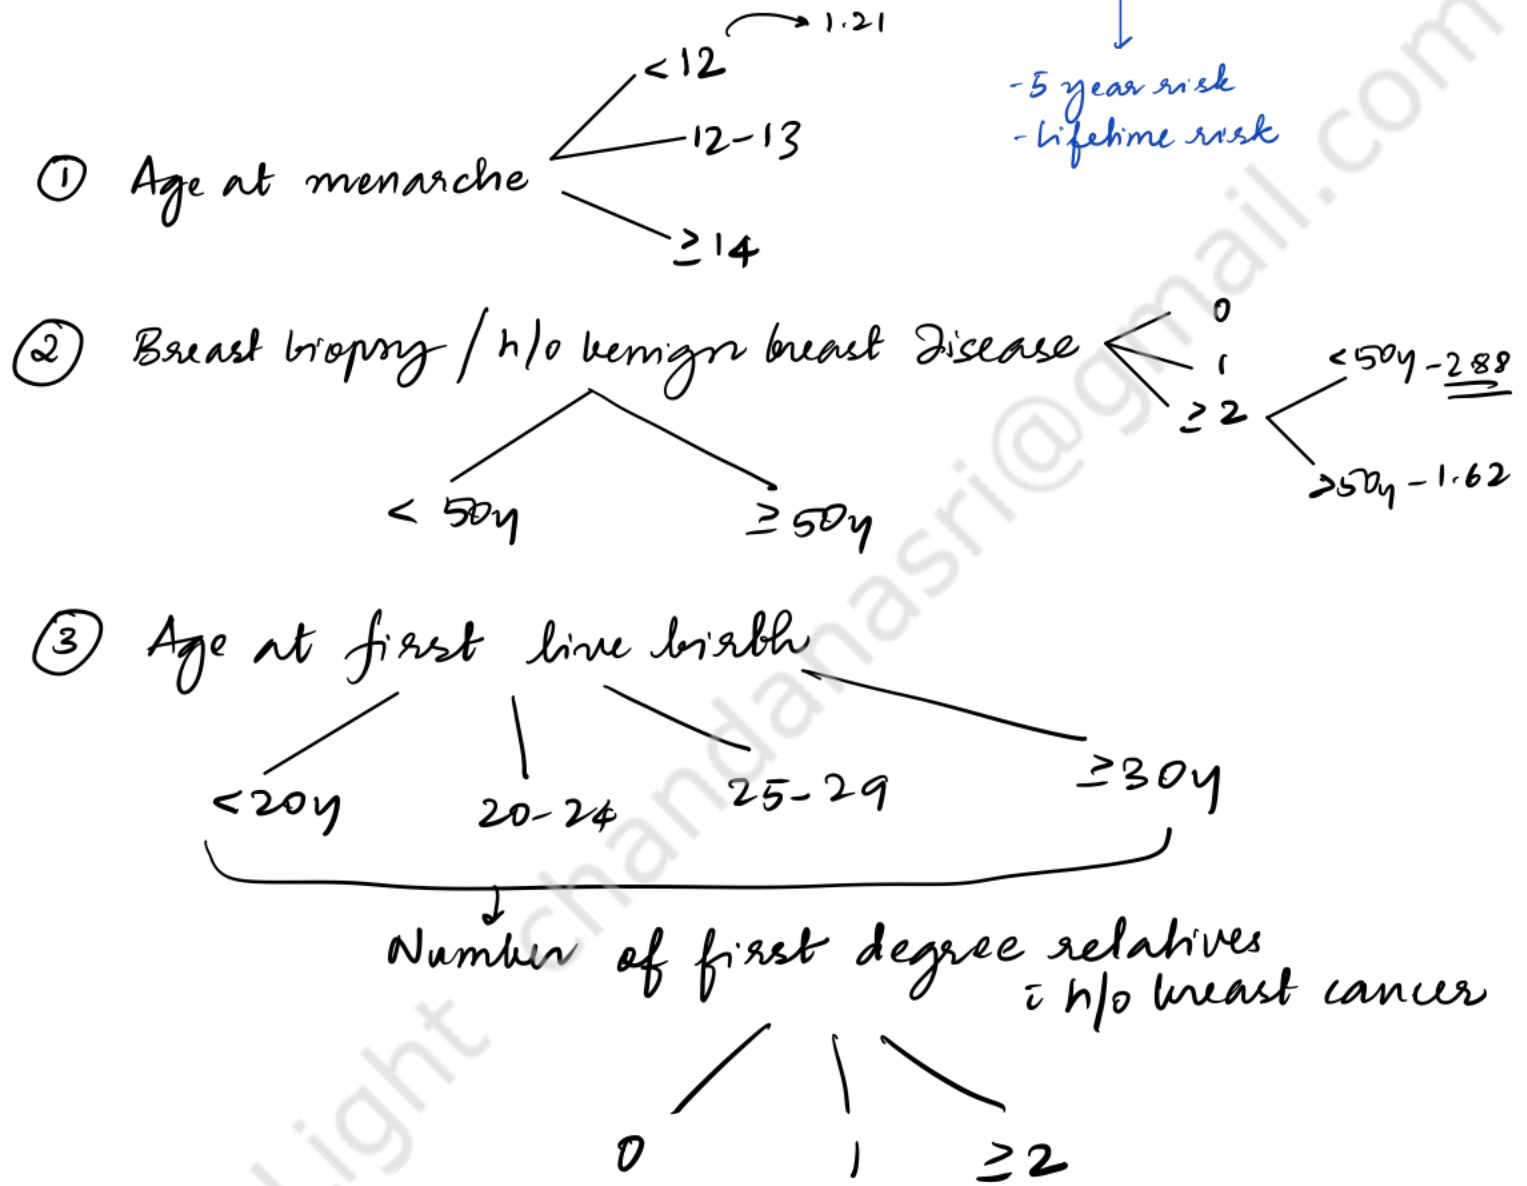 <12 → 1.21
- 5 year risk
- Lifetime risk
12-13
① Age at menarche
≥14
② Breast biopsy / h/o benign breast Disease
0
1
≥2
<50y - 2.88
>50y - 1.62
<50y ≥50y
③ Age at first live birth
<20y 20-24 25-29 ≥30y
Number of first degree relatives
c̄ h/o breast cancer
0 1 ≥2
Light chandanasri@gmail.com